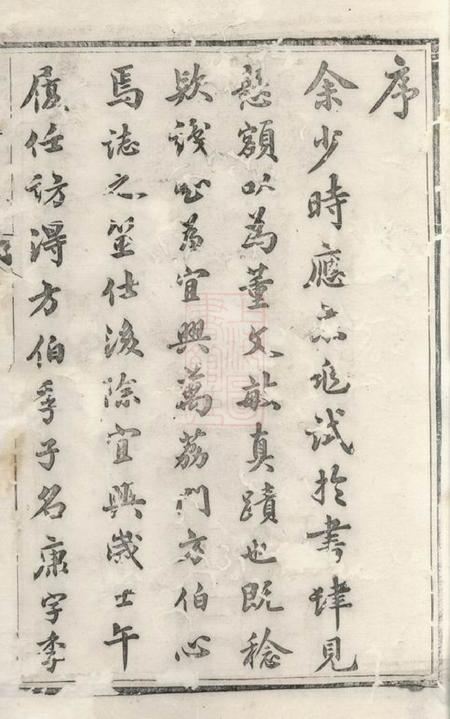 序
余少時應京兆試於書肆見
懸額以為董文敏真蹟也既稔
款識必為宜興萬荔門方伯心
焉誌之筮仕後除宜興歲壬午
履任訪得方伯季子名康字季